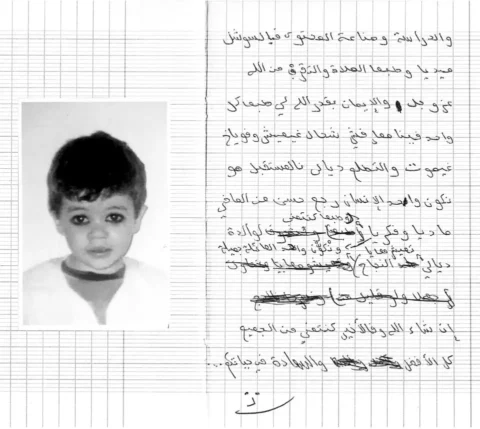 والدراسة وصناعة المحتوى فيالسوشل
ميديا وطبعا الصلاة والتقرب من الله
عز وجل والإيمان بقدر الله لي طبعا كل
واحد فينا معارفش شحال غيعيش وفوقاش
غيموت والتطلع ديالي نالمستقبل هو
نكون واحد الإنسان رجع حسن من الماضي
ماديا وفكريا وطبعا كنتمنى لوالدة
ديالي النجاح
إن شاء الله وفالأخير كنتمنى من الجميع
كل الأفضل والسعادة في حياتكم...